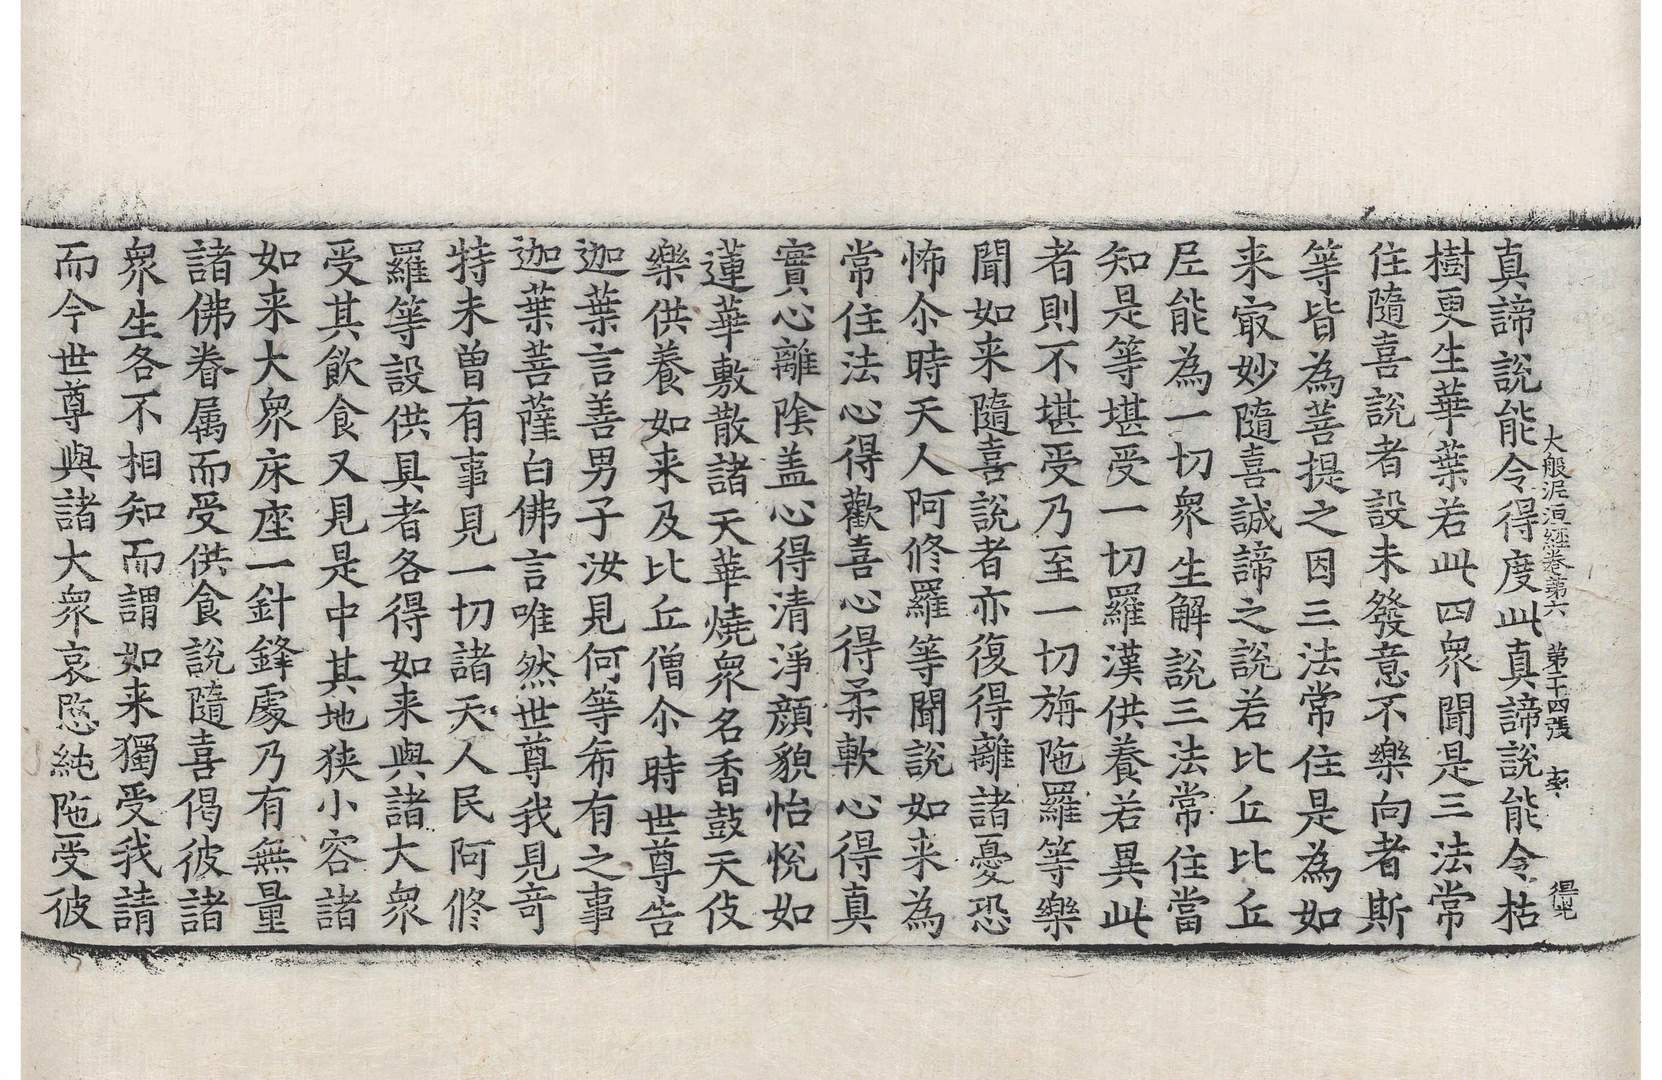 大般泥洹經卷第六　第十四張
真諦說能令得度此真諦說能令枯
樹更生華葉若此四衆聞是三法常
住隨喜說者設未發意不樂向者斯
等皆為菩提之因三法常住是為如
来㝡妙隨喜誠諦之說若比丘比丘
尼能為一切衆生解說三法常住當
知是等堪受一切羅漢供養若異此
者則不堪受乃至一切旃陁羅等樂
聞如来隨喜說者亦復得離諸憂恐
怖尒時天人阿修羅等聞說如来為
常住法心得歡喜心得柔軟心得真
實心離陰盖心得清淨顏貌怡悅如
蓮華敷散諸天華燒衆名香鼓天伎
樂供養如来及比丘僧尒時世尊告
迦葉言善男子汝見何等希有之事
迦葉菩薩白佛言唯然世尊我見奇
特未曾有事見一切諸天人民阿修
羅等設供具者各得如来與諸大衆
受其飲食又見是中其地狹小容諸
如来大衆床座一針鋒處乃有無量
諸佛眷属而受供食說隨喜偈彼諸
衆生各不相知而謂如来獨受我請
而今世尊與諸大衆哀愍純陁受彼